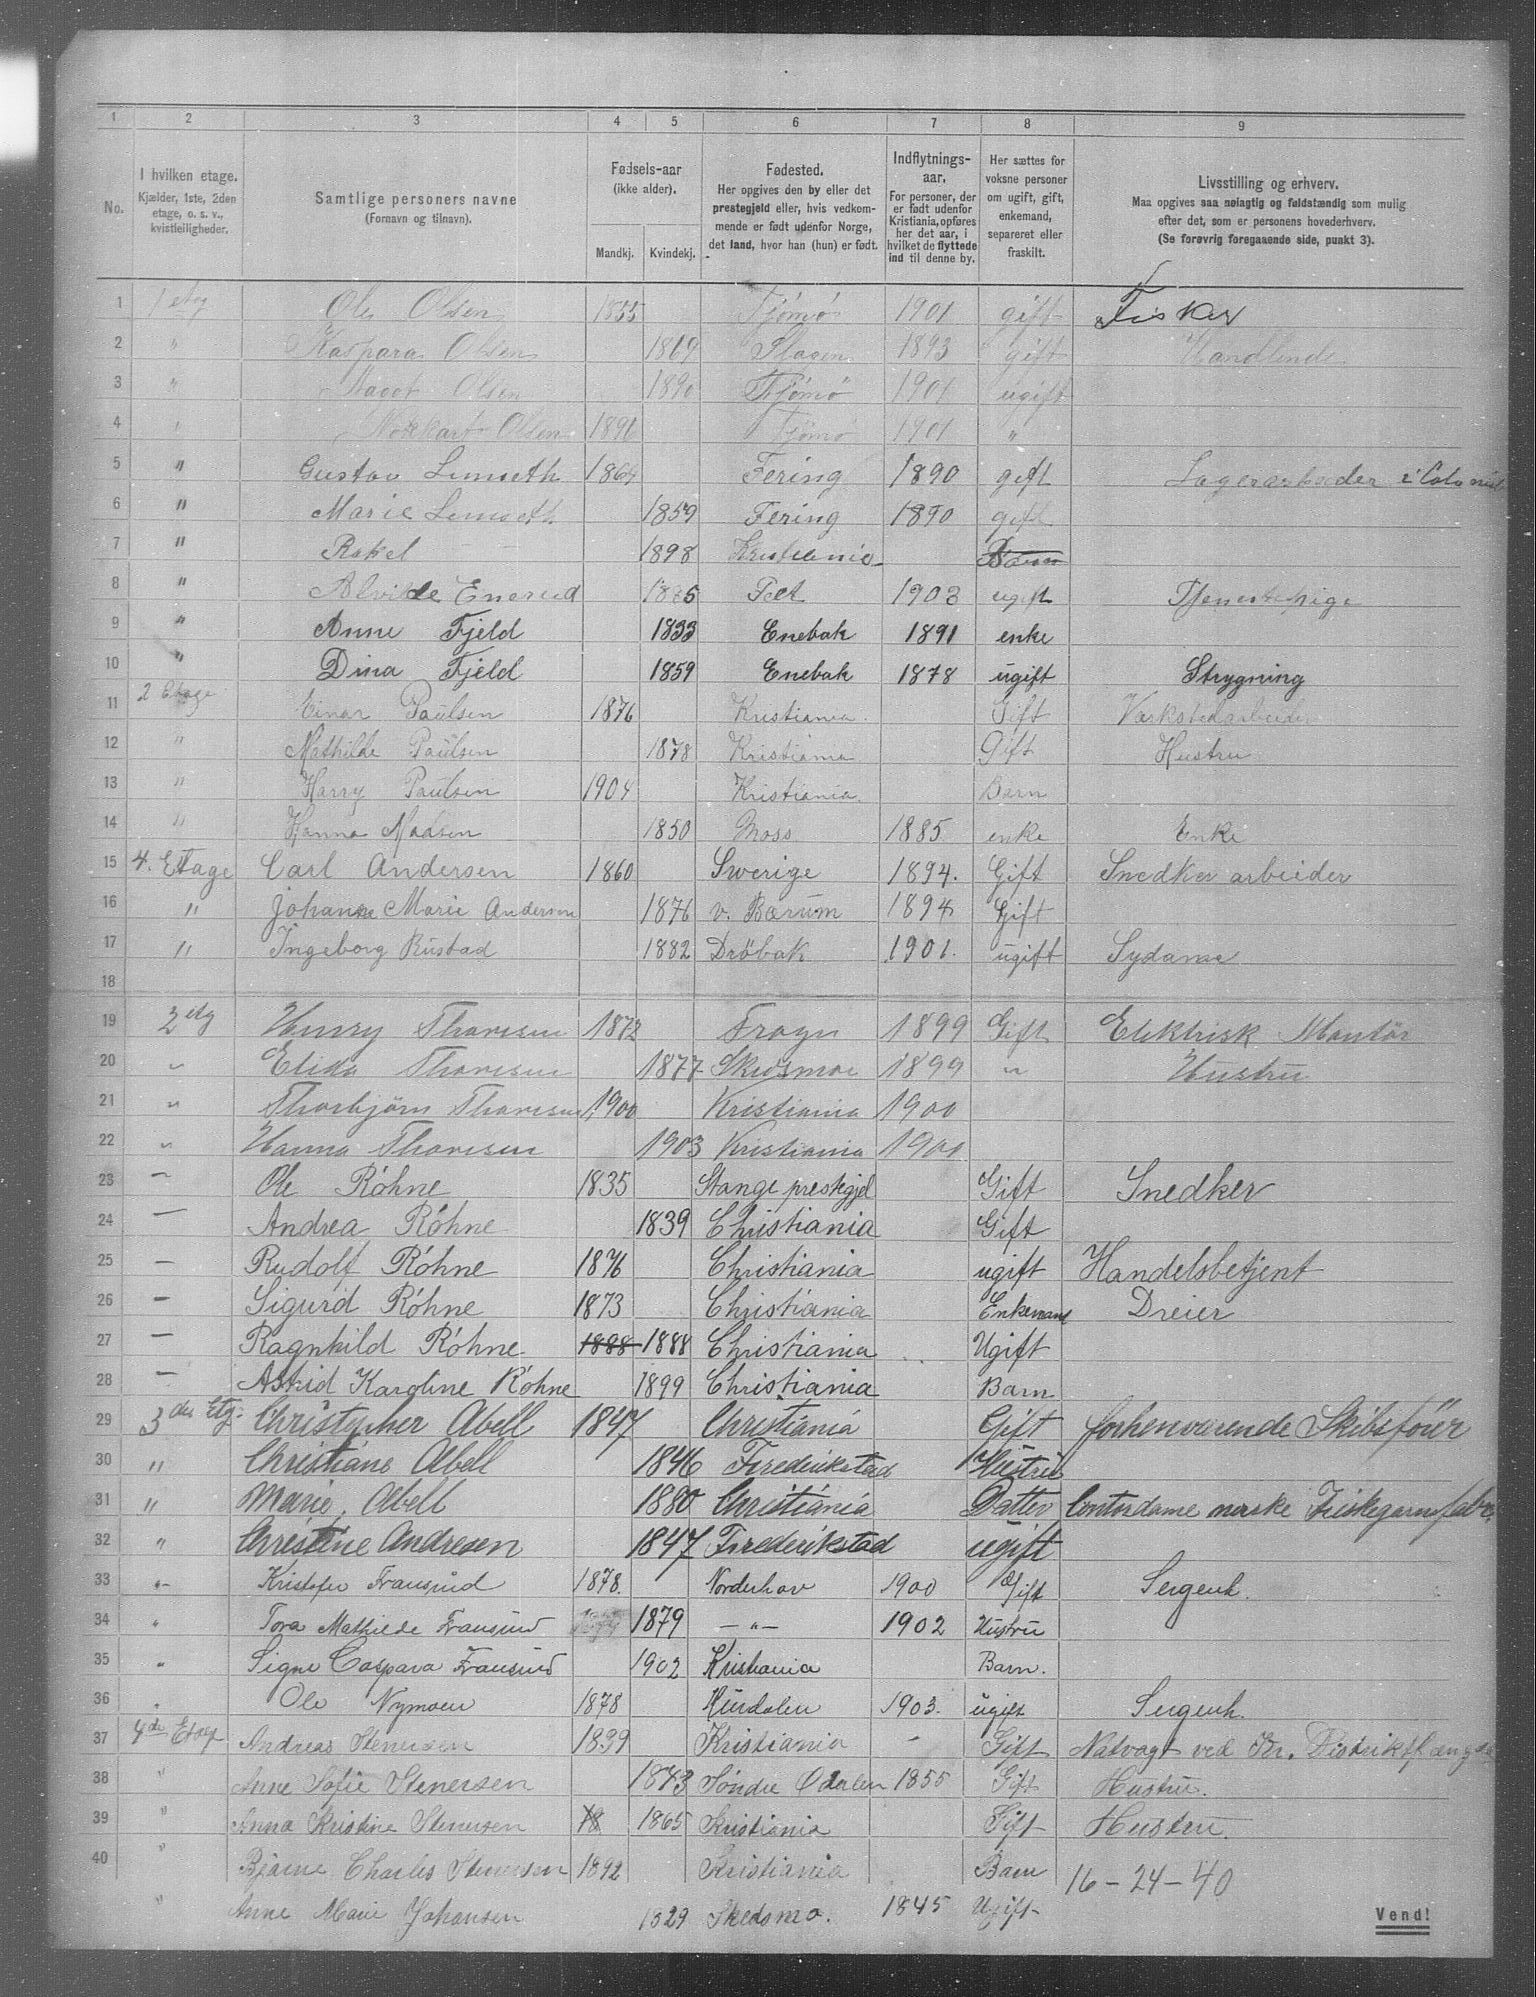 1 2 3 4 5 6 7 8 9
No. I hvilken etage. Kjælder, 1ste, 2den etage, o. s. v., kvistleiligheder. Samtlige personers navne (Fornavn og tilnavn). Fødsels-aar (ikke alder). Mandkj. Kvindekj. Fødested. Her opgives den by eller det prestegjeld eller, hvis vedkommende er født udenfor Norge, det land, hvor han (hun) er født. Indflytnings-aar. For personer, der er født udenfor Kristiania, opføres her det aar, i hvilket de flyttede ind til denne by. Her sættes for voksne personer om ugift, gift, enkemand, separeret eller fraskilt. Livsstilling og erhverv. Maa opgives saa nøiagtig og fuldstændig som mulig efter det, som er personens hovederhverv. (Se forøvrig foregaaende side, punkt 3).
1 1 etag Ole Olsen 1855 Tjømø 1901 gift Fisker
2 " Kaspara Olsen 1869 Slagen 1893 gift Handlende
3 " Olsen 1890 Tjømø 1901 ugift
4 " Olsen 1896 Tjømø 1901 "
5 " Gustav Lenseth 1864 Fering 1890 gift Lagerarbeider i
6 " Marie Lenseth 1859 Fering 1890 gift
7 " Rakel 1898 Kristiania Barn
8 " Alvilde Enerud 1885 Fet 1903 ugift Tjenestepige
9 " Anne Fjeld 1833 Enebak 1891 enke
10 " Dina Fjeld 1859 Enebak 1878 ugift Strygning
11 2 Etage Einar Paulsen 1876 Kristiania. Gift Værkstedarbeider
12 " Mathilde Paulsen 1878 Kristiania Gift Hustru
13 " Harry Paulsen 1904 Kristiania. Barn
14 " Hanna Madsen 1850 Moss 1885. enke Enke
15 4. Etage Carl Andersen 1860 Swerige 1894. Gift Snedker arbeider
16 " Johanne Marie Andersen 1876 v. Bærum 1894 Gift
17 " Ingeborg Rustad 1882 Drøbak 1901. ugift Sydame
18
19 2 etg Henry Thoresen 1872 Frogn 1899 Gift Elektrisk Montør
20 " Elida Thoresen 1877 Skedsmoe 1899 " Hustru
21 " Thorbjørn Thoresen 1900 Kristiania 1900
22 " Hanna Thoresen 1903 Kristiania 1900
23 — Ole Røhne 1835 Stange prestegjel Gift Snedker
24 — Andrea Røhne 1839 Christiania Gift
25 — Rudolf Røhne 1876 Christiania ugift Handelsbetjent
26 — Sigurd Røhne 1873 Christiania Enkemand Dreier
27 — Ragnhild Røhne 1888 1888 Christiania Ugift
28 — Astrid Karoline Røhne 1899 Christiania Barn
29 3die Etg. Christopher Abell 1847 Christiania Gift forhenværende Skibsfører
30 " Christiane Abell 1846 Frederikstad Hustru
31 " Marie. Abell 1880 Christiania Datter Contordame norske Fiskegarnsfabr.
32 " Christine Andresen 1847 Frederikstad ugift
33 " Kristofer Fransrud 1878. Norderhov 1900 Gift Sergent.
34 " Tora Mathilde Fransrud 1879 — " — 1902 Hustru
35 " Signe Caspara Fransrud 1902 Kristiania Barn.
36 " Ole Nymoen 1878 Hurdalen 1903. ugift Sergent.
37 4de Etage Andreas Stenersen 1839 Kristiania - Gift Natvagt ved Kr.
38 " Anne Sofie Stenersen 1843 Søndre Odalen 1855 Gift Hustru.
39 " Anna Kristine Stenersen 18 1865 Kristiania Gift Hustru.
40 " Bjarne Charles Stenersen 1892 Kristiania Barn 16 - 24 - 40
" Anne Marie Johansen 1829 Skedsmo. 1845 Ugift
Vend!